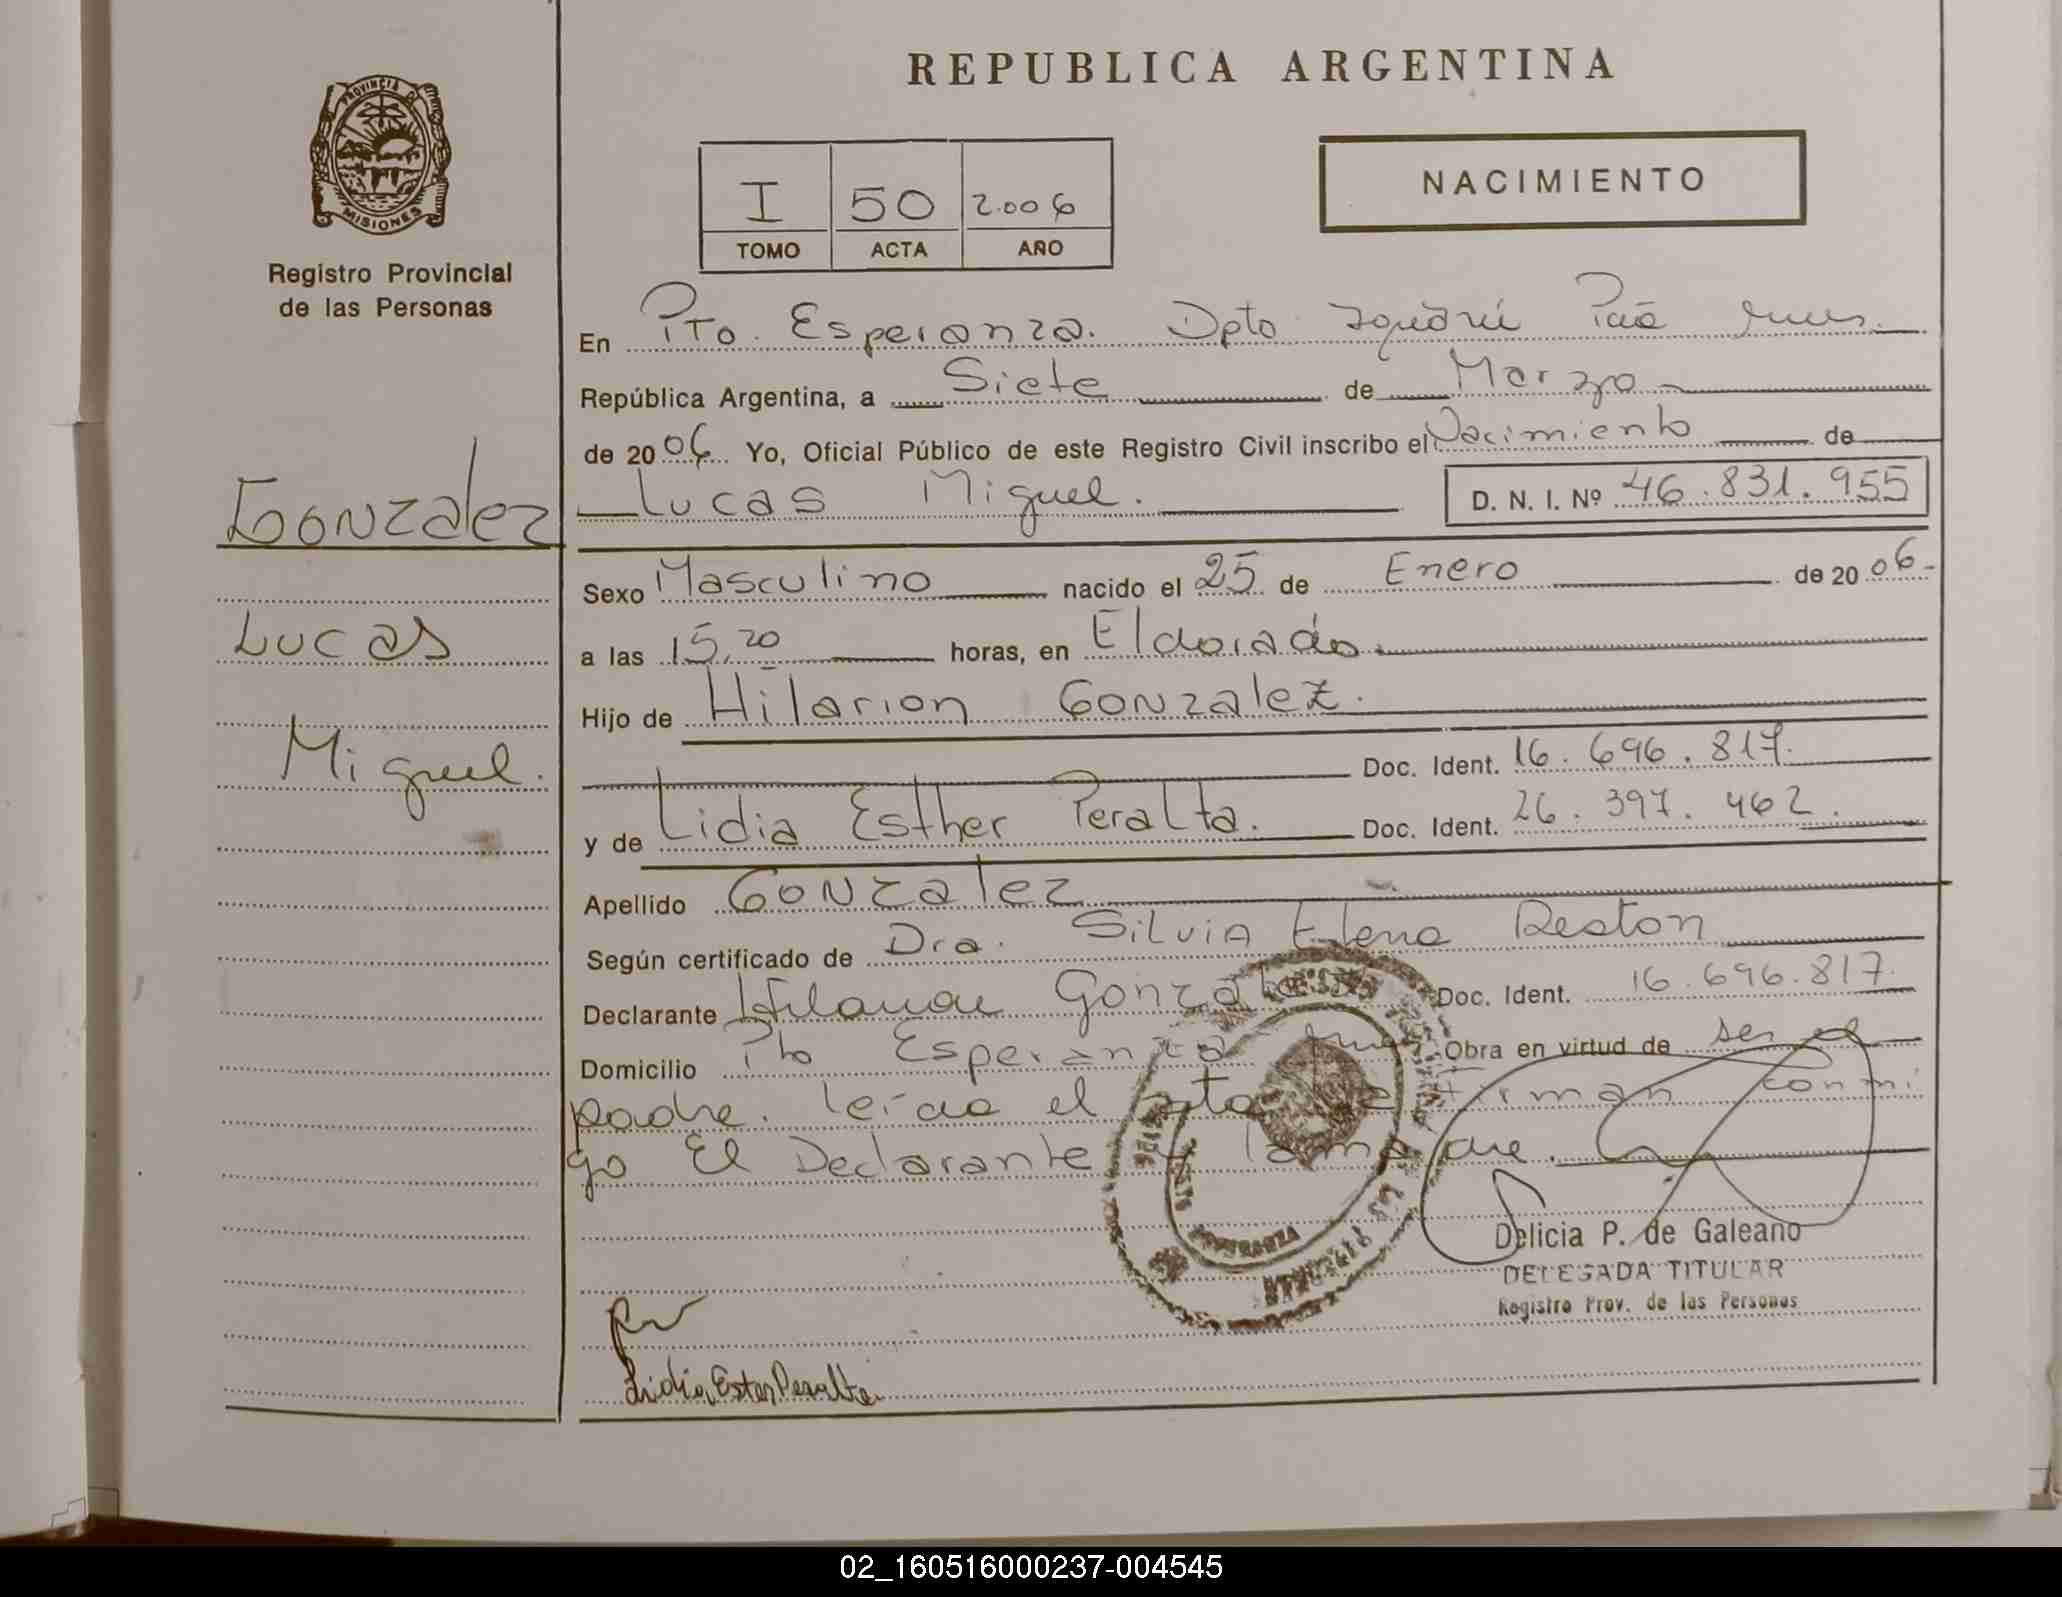 REPUBLICA ARGENTINA
PROVINCIA DE
MISIONES
Registro Provincial
de las Personas
I 50 2.006
TOMO ACTA AÑO
NACIMIENTO
En Pto. Esperanza. Dpto Iguazú Pcia
República Argentina, a Siete de Marzo
de 2006 Yo, Oficial Público de este Registro Civil inscribo el Nacimiento de
Gonzalez
Lucas Miguel. D. N. I. Nº 46.831.955
Sexo Masculino nacido el 25 de Enero de 2006
Lucas
a las 15,20 horas, en Eldorado
Hijo de Hilarion Gonzalez.
Miguel.
Doc. Ident. 16.696.817.
y de Lidia Esther Peralta. Doc. Ident. 26.397.462.
Apellido Gonzalez
Según certificado de Dra. Silvia Elena Reston
Declarante Gonzalez Doc. Ident. 16.696.817.
Domicilio Pto Esperanza Obra en virtud de ser el
padre. leída el acta Firman conmi
go El Declarante y
ESPERANZA
Delicia P. de Galeano
DELEGADA TITULAR
Registro Prov. de las Personas
Lidia Ester Peralta
02_160516000237-004545